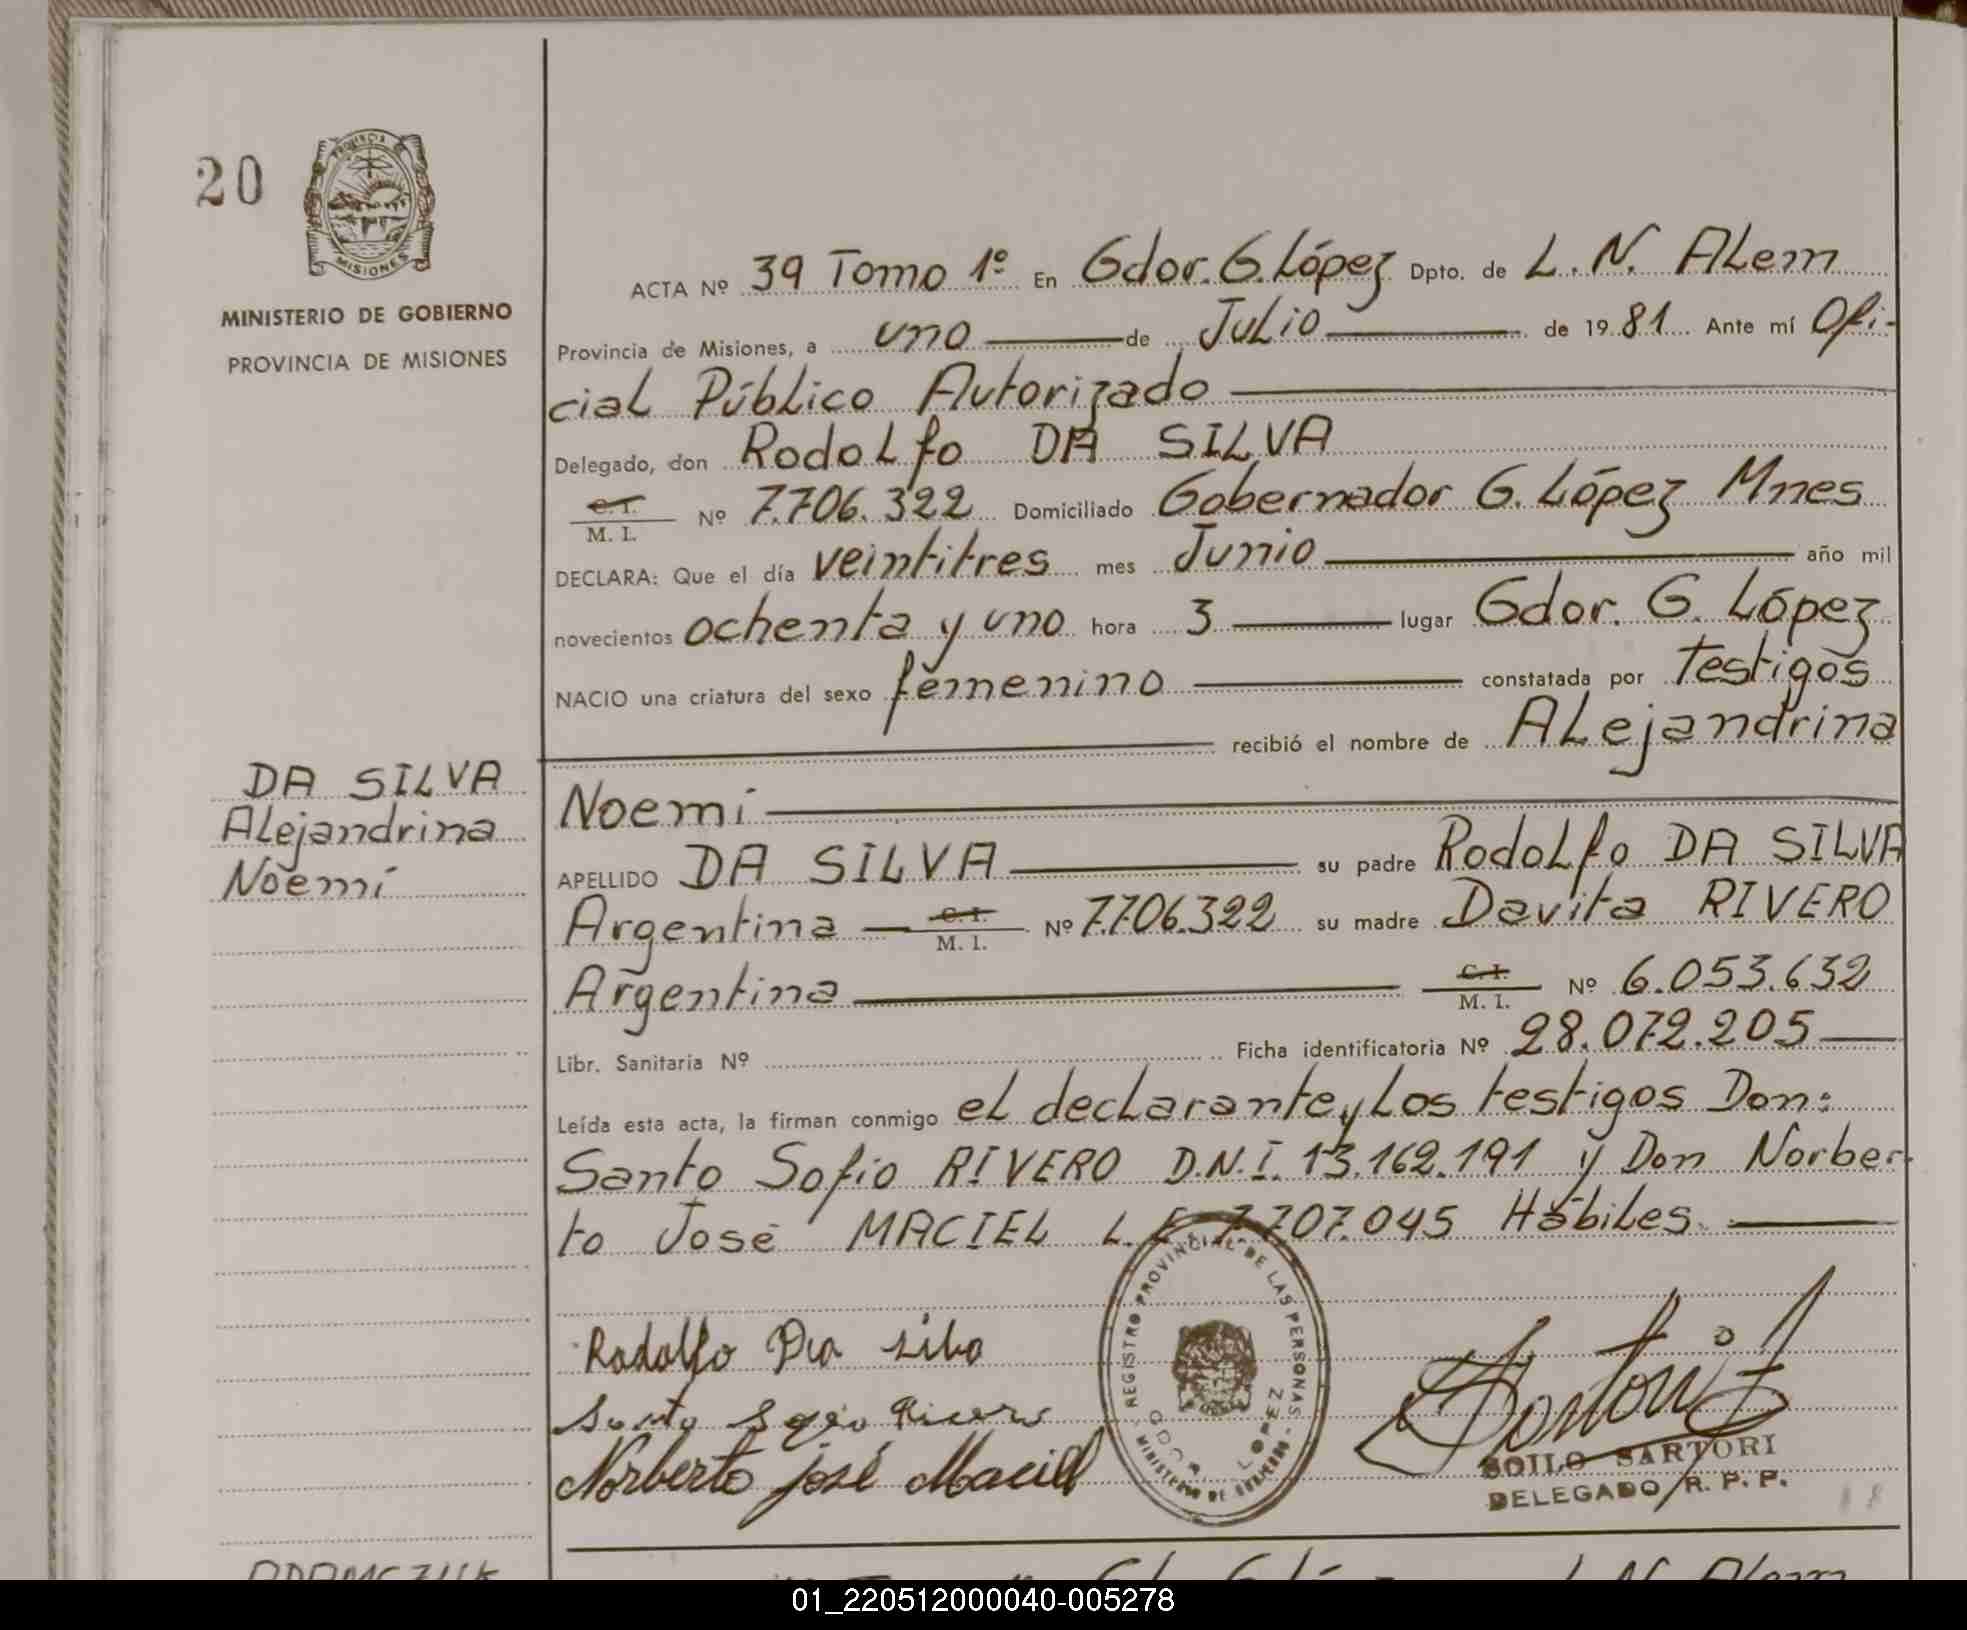 20
PROVINCIA DE
MISIONES
MINISTERIO DE GOBIERNO
PROVINCIA DE MISIONES
ACTA Nº 39 Tomo 1º En Gdor. G. López Dpto. de L. N. ALem
Provincia de Misiones, a uno de JuLio de 1981 Ante mí Ofi-
cial Público Autorizado
Delegado, don RodoLfo DA SILVA
C. I.
M. I. Nº 7.706.322 Domiciliado Gobernador G. López Mnes
DECLARA: Que el día veintitres mes Junio año mil
novecientos ochenta y uno hora 3 lugar Gdor. G. López
NACIO una criatura del sexo femenino constatada por Testigos
recibió el nombre de ALejandrina
Noemí
DA SILVA
ALejandrina
Noemí
APELLIDO DA SILVA su padre RodoLfo DA SILVA
Argentina C. I. M. I. Nº 7.706.322 su madre Davita RIVERO
Argentina C. I. M. I. Nº 6.053.632
Libr. Sanitaria Nº Ficha identificatoria Nº 28.072.205
Leída esta acta, la firman conmigo el declarante y Los testigos Don:
Santo Sofio RIVERO D.N.I. 13.162.191 y Don Norber-
to José MACIEL L.E 7.707.045 HábiLes.
REGISTRO PROVINCIAL DE LAS PERSONAS
GDOR. LOPEZ
MINISTERIO DE GOBIERNO
Rodolfo Da silva
Norberto josé Maciel
SOILO SARTORI
DELEGADO R. P. P.
01_220512000040-005278